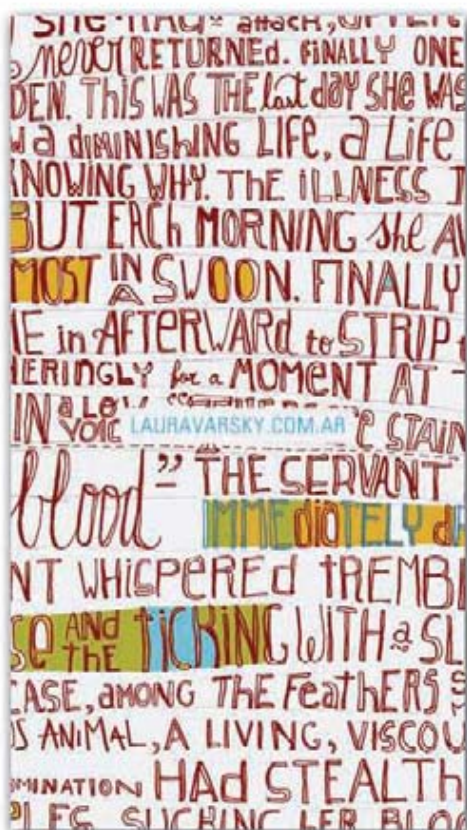 SHE HAD attack, OFTEN
never RETURNED. FINALLY ONE
DEN. THIS WAS THE last day SHE WAS
a DIMINISHING LIFE, a LIFE
KNOWING WHY. THE ILLNESS
BUT EACH MORNING she
MOST IN A SWOON. FINALLY
in AFTERWARD to STRIP
ERINGLY for a MOMENT AT
IN a LOW VOIC
LAURAVARSKY.COM.AR
STAIN
blood" THE SERVANT
IMMEDIATELY
NT WHISPERED TREMBL
SE AND THE TICKING WITH a SL
CASE, AMONG THE FEATHERS
S ANIMAL, A LIVING, VISCOU
MINATION HAD STEALTH
PLES, SUCKING HER BLOO